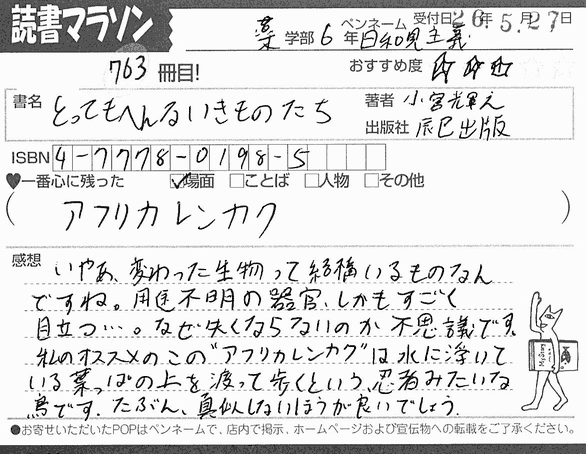 読書マラソン
薬学部6年 ペンネーム 日和見主義 受付日26年5月27日
763冊目! おすすめ度 ☆☆☆
書名 とってもへんないきものたち 著者 小宮輝之
出版社 辰巳出版
ISBN 4-7778-0198-5
♥一番心に残った ☑場面 □ことば □人物 □その他
(アフリカレンカク)
感想 いやあ、変わった生物って結構いるものなん
ですね。用途不明の器官、しかもすごく
目立つ…。なぜ失くならないのか不思議です。
私のオススメのこの"アフリカレンカク"は水に浮いて
いる葉っぱの上を渡って歩くという、忍者みたいな
鳥です。たぶん、真似しないほうが良いでしょう。
●お寄せいただいたPOPはペンネームで、店内で掲示、ホームページおよび宣伝物への転載をご了承ください。